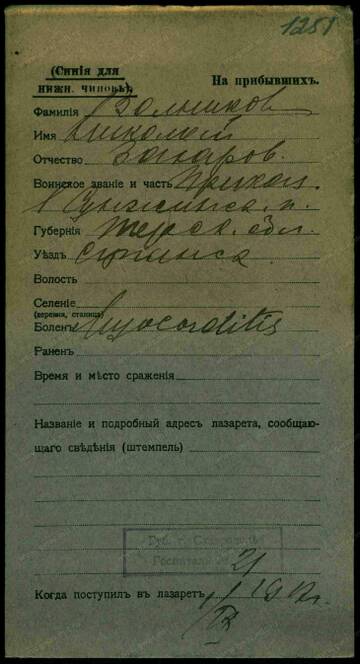 1251
(Синія для
нижн. чиновъ).
На прибывшихъ.
Фамилія Вольников
Имя Николай
Отчество Захаров.
Воинское званіе и часть Приказ.
1 Сунженск. п.
Губернія Терск. обл.
Уѣздъ
Волость
Селеніе
(деревня, станица)
Боленъ Myocarditis
Раненъ
Время и мѣсто сраженія
Названіе и подробный адресъ лазарета, сообщаю-
щаго свѣдѣнія (штемпель)
Госпиталь
21
Когда поступилъ въ лазаретъ 1/IX 191 г.